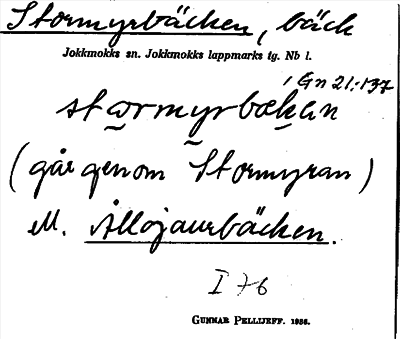 Stormyrbäcken, bäck
Jokkmokks sn. Jokkmokks lappmarks tg. Nb l.
Gn 21:137
stormyrbækan
(går genom Stormyran)
M. Ållojaurbäcken.
I 76
GUNNAR PELLIJEFF. 1956.